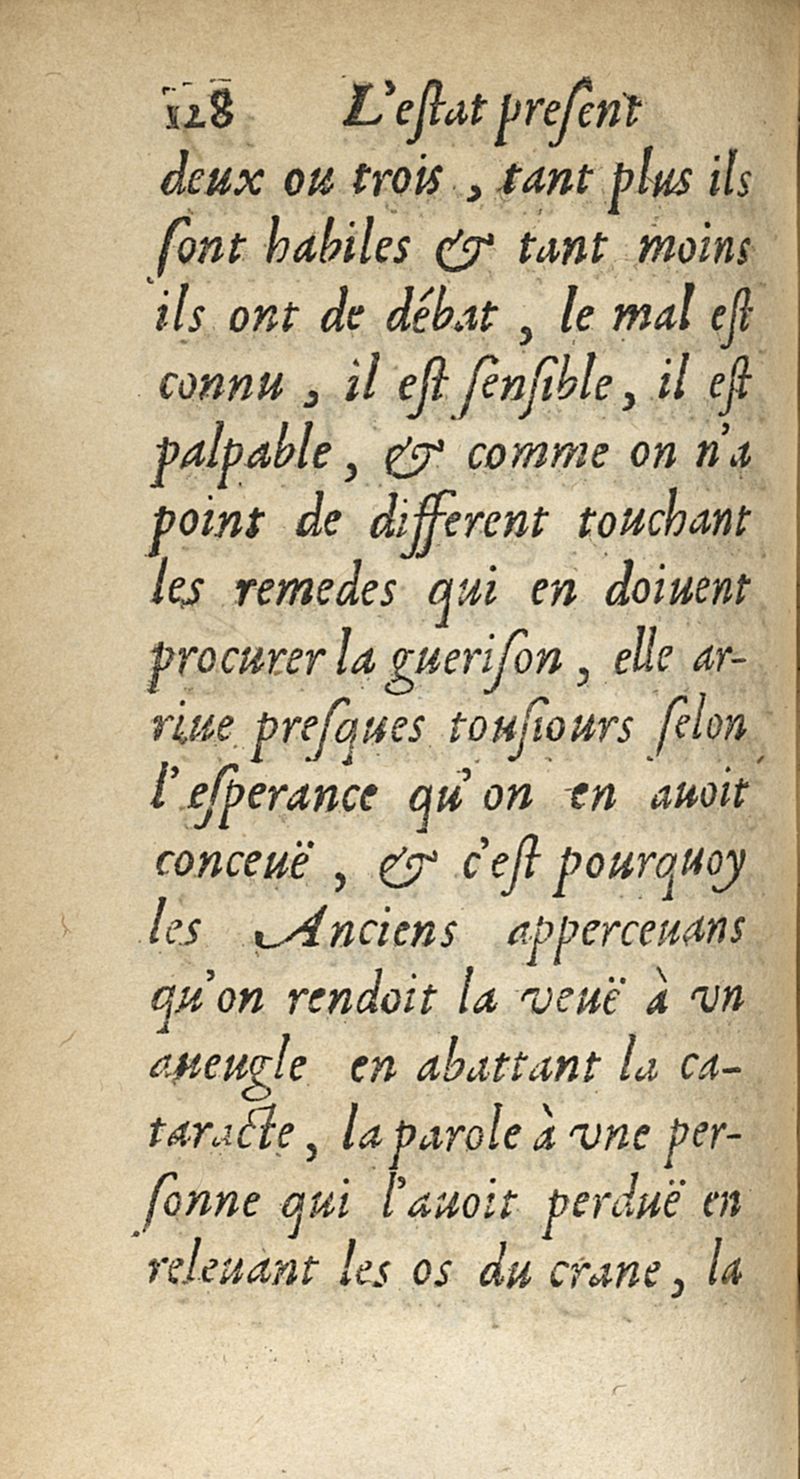 128 L'eſtat preſent
deux ou trois, tant plus ils
ſont habiles & tant moins
ils ont de débat, le mal eſt
connu, il eſt ſenſible, il eſt
palpable, & comme on n'a
point de different touchant
les remedes qui en doiuent
procurer la gueriſon, elle ar-
riue preſques touſiours ſelon
l'eſperance qu'on en auoit
conceuë, & c'eſt pourquoy
les Anciens apperceuans
qu'on rendoit la veuë à vn
aueugle en abattant la ca-
taracte, la parole à vne per-
ſonne qui l'auoit perduë en
releuant les os du crane, la